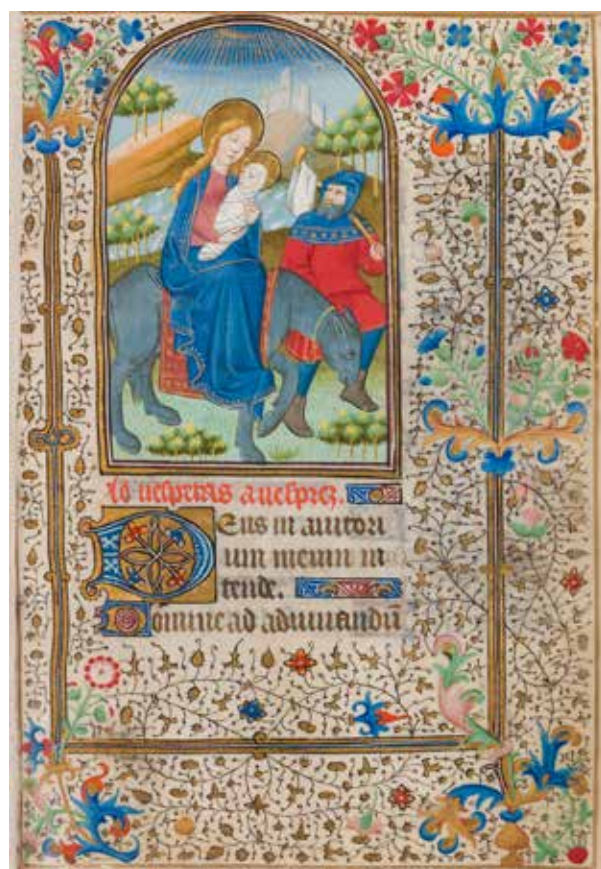 Ad uesperas a uesprez.
Deus in adiutori
um meum in
tende.
Domine ad adiuuandũ